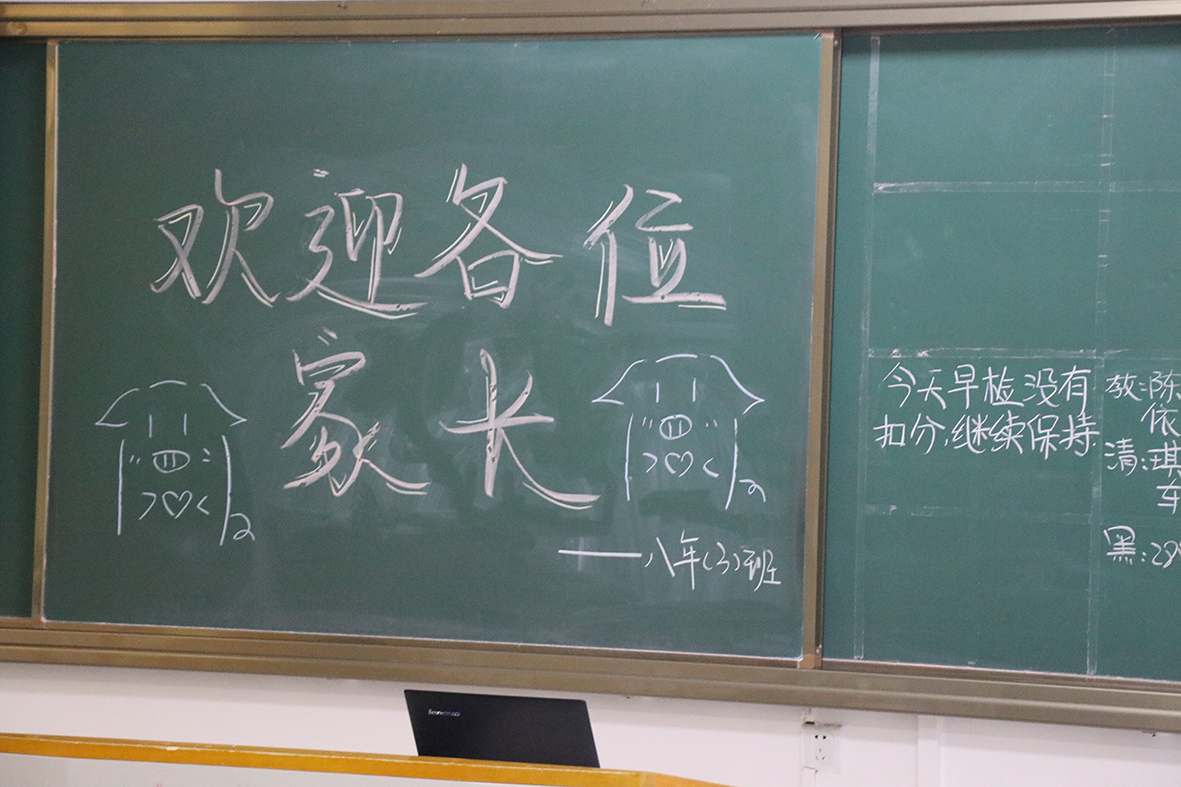 欢迎各位
家长
——八年(3)班
今天早检没有
扣分,继续保持
教:陈
依
清:琪
车
黑:28
lenovo